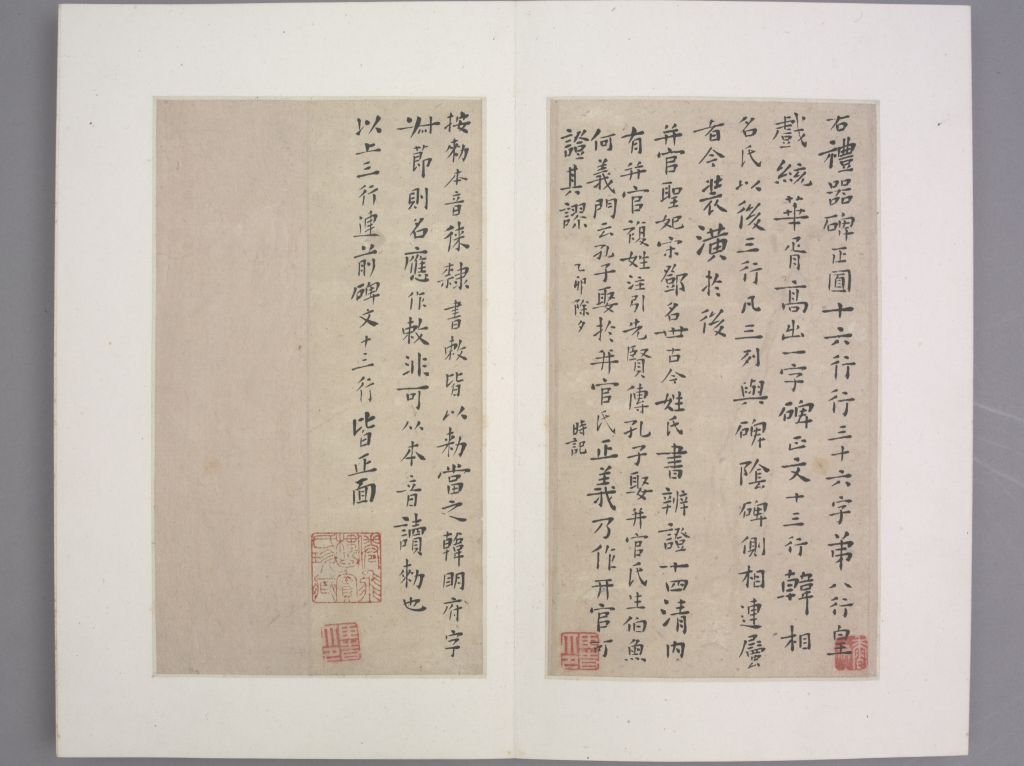 右禮器碑正面十六行行三十六字第八行皇
戲統華胥高出一字碑正文十三行韓相
名氏以後三行凡三列與碑陰碑側相連屬
者今裝潢於後
并官聖妃宋鄧名世古今姓氏書辨證十四清內
有并官複姓注引先賢傳孔子娶并官氏生伯魚
何義門云孔子娶於并官氏正義乃作开官可
證其謬
乙卯除夕
時記
按勑本音徠隸書敕皆以勑當之韓明府字
叔節則名應作敕非可以本音讀勑也
以上三行連前碑文十三行皆正面